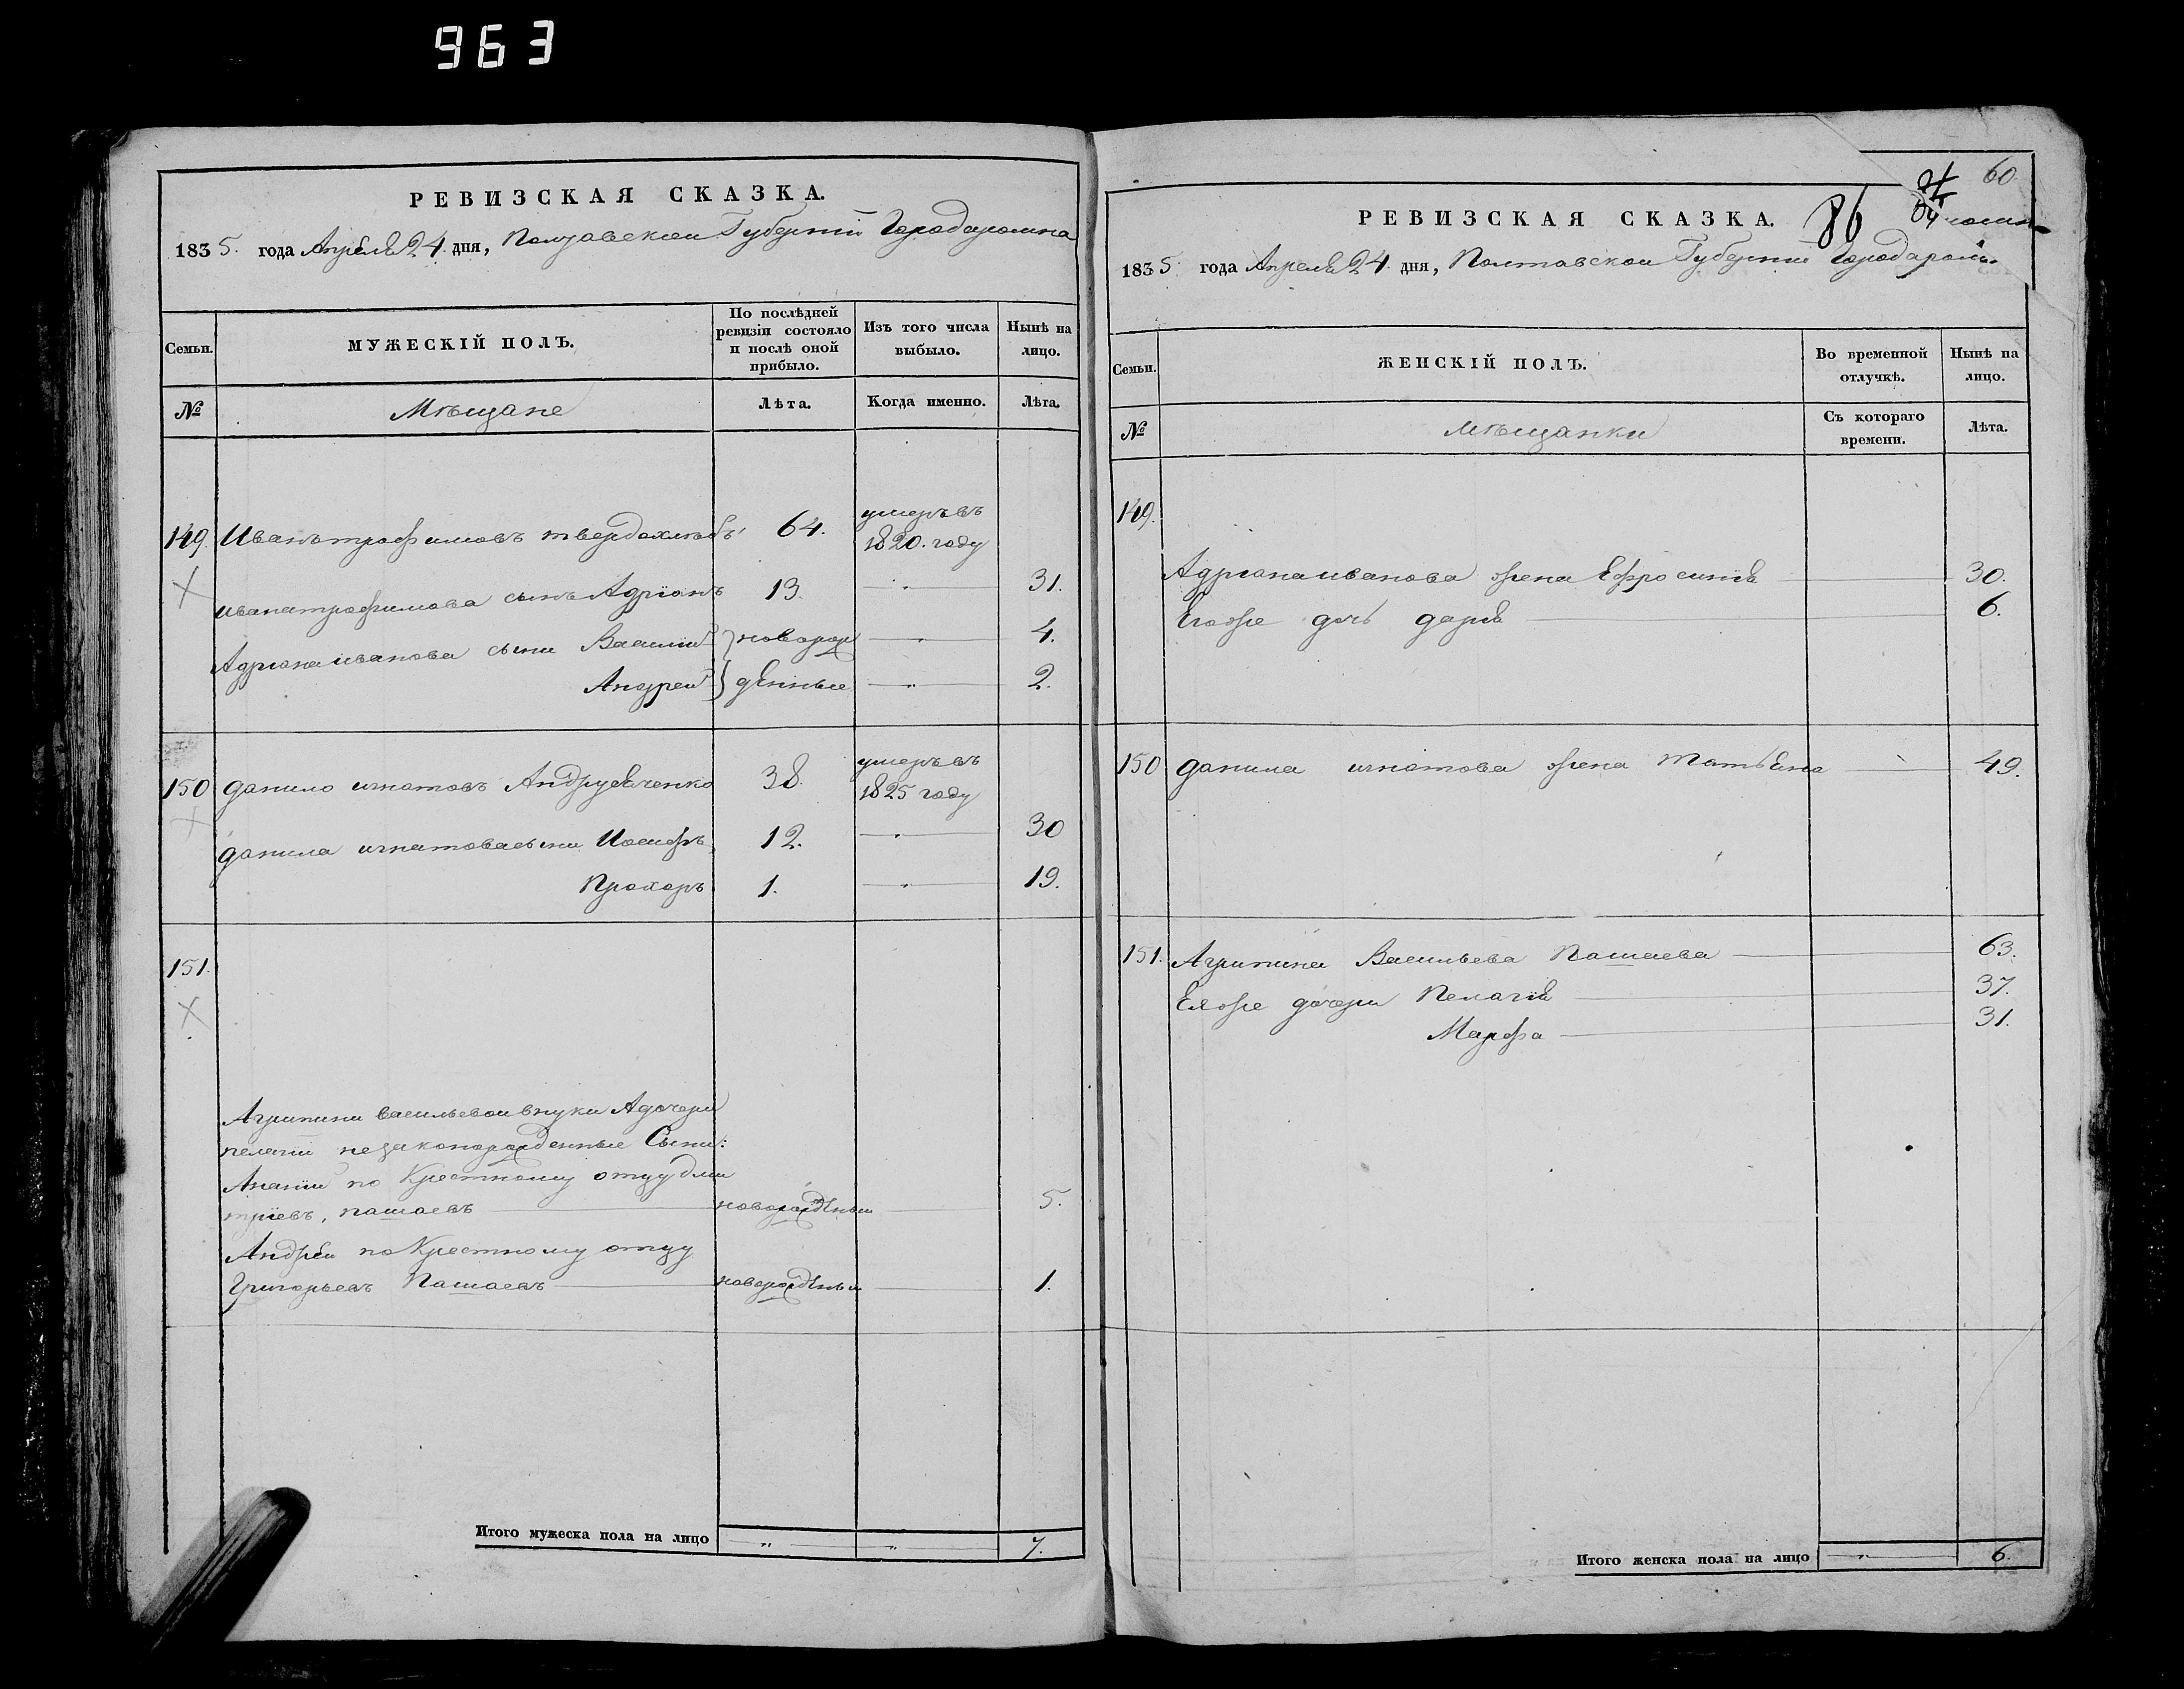 963
РЕВИЗСКАЯ СКАЗКА.
1835. года Апреля 24. дня, Полтавской Губернии Города ромна
Семьи.
МУЖЕСКІЙ ПОЛЪ.
По послѣдней ревизіи состояло и послѣ оной прибыло.
Изъ того числа выбыло.
Нынѣ на лицо.
№
Мѣщане
Лѣта.
Когда именно.
Лѣта.
149. Иванъ трофимовъ твердохлѣбъ 64. умеръ въ 1820. году
ивана трофимова сынъ Адріанъ 13. " 31.
Адріана иванова сыни Василій } новорож " 4.
Андрей } денные " 2.
150 данило игнатовъ Андрусенченко 38. умеръ въ 1825 году
данила игнатова сыни Иосифъ 12. " 30
Прохоръ 1. " 19.
151.
Агрипини васильевой внуки А дочери
пелагіи незаконорожденные Сыни:
Ананій по Крестному отцу дми
тріевъ, пашаевъ новорожденный 5.
Андрей по Крестному отцу
Григорьевъ Пашаевъ новорожденный 1.
Итого мужеска пола на лицо " " 7.
60
86
РЕВИЗСКАЯ СКАЗКА.
1835 года Апреля 24. дня, Полтавской Губерніи Города
Семьи.
ЖЕНСКІЙ ПОЛЪ.
Во временной отлучкѣ.
Нынѣ на лицо.
№
мѣщанки
Съ котораго времени.
Лѣта.
149.
Адріана иванова жена Ефросинія 30.
Егоже дочь дарія 6.
150 данила игнатова жена Татьяна 49.
151. Агрипина Васильева Пашаева 63.
Еяже дочери Пелагія 37.
Марфа 31.
Итого женска пола на лицо " 6.